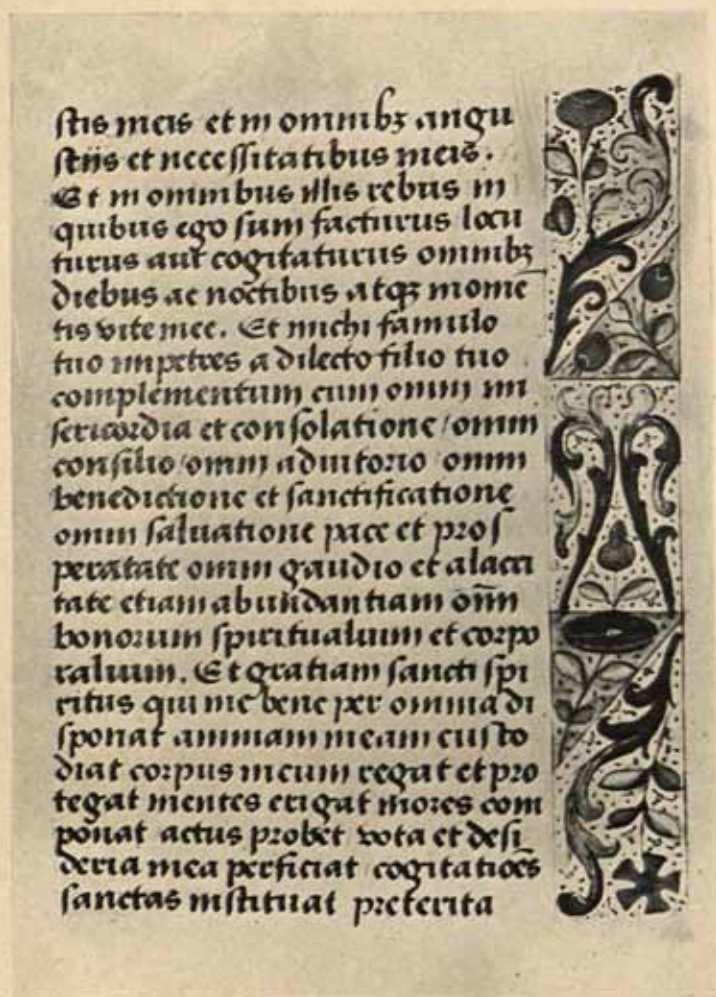 stis meis et in omnibꝫ angu
stiis et necessitatibus meis.
Et in omnibus illis rebus in
quibus ego sum facturus locu
turus aut cogitaturus omnibꝫ
diebus ac noctibus atqꝫ momē
tis vite mee. Et michi famulo
tuo impetres a dilecto filio tuo
complementum cum omni mi
sericordia et consolatione / omni
consilio / omni adiutorio omni
benedictione et sanctificatione
omni saluatione pace et pros
peratate omni gaudio et alacri
tate etiam abundantiam oīm
bonorum spiritualium et corpo
ralium. Et gratiam sancti spi
ritus qui me bene per omnia di
sponat animam meam custo
diat corpus meum regat et pro
tegat mentes erigat mores com
ponat actus probet vota et desi
deria mea perficiat cogitatiōes
sanctas instituat preterita